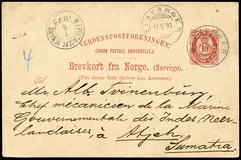 STAVANGER
VERDENSPOSTFORENINGEN.
(UNION POSTALE UNIVERSELLE.)
Brevkort fra Norge. (Norvège).
(Paa denne Side skrives kun Adressen.)
10
4
Mr. Alb. Frinenburg,
Chef mécanicien de la Marine
Gouvernementale des Indes Neer-
landaises, à Atjeh
Sumatra.